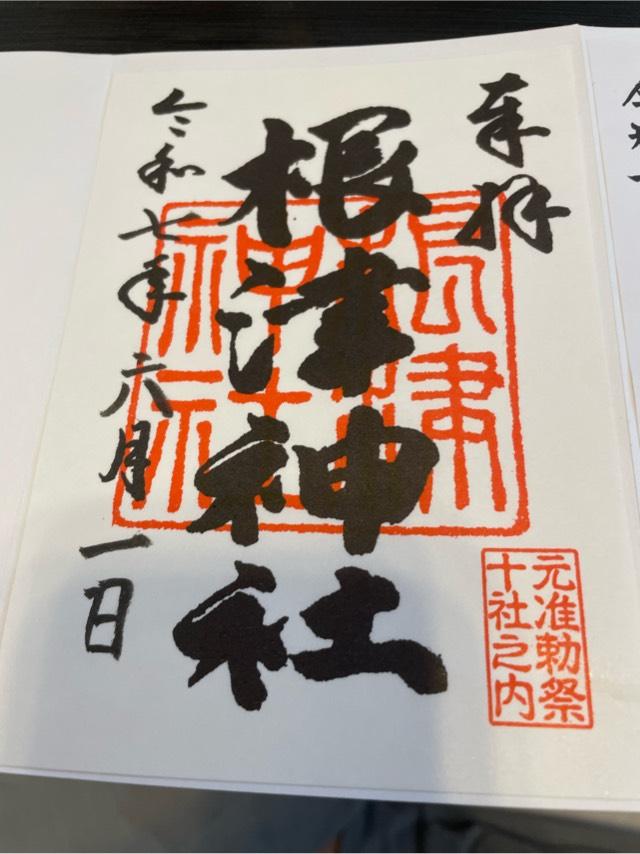 奉拝
根津神社
令和七年六月一日
根津
神社
元准勅祭
十社之内